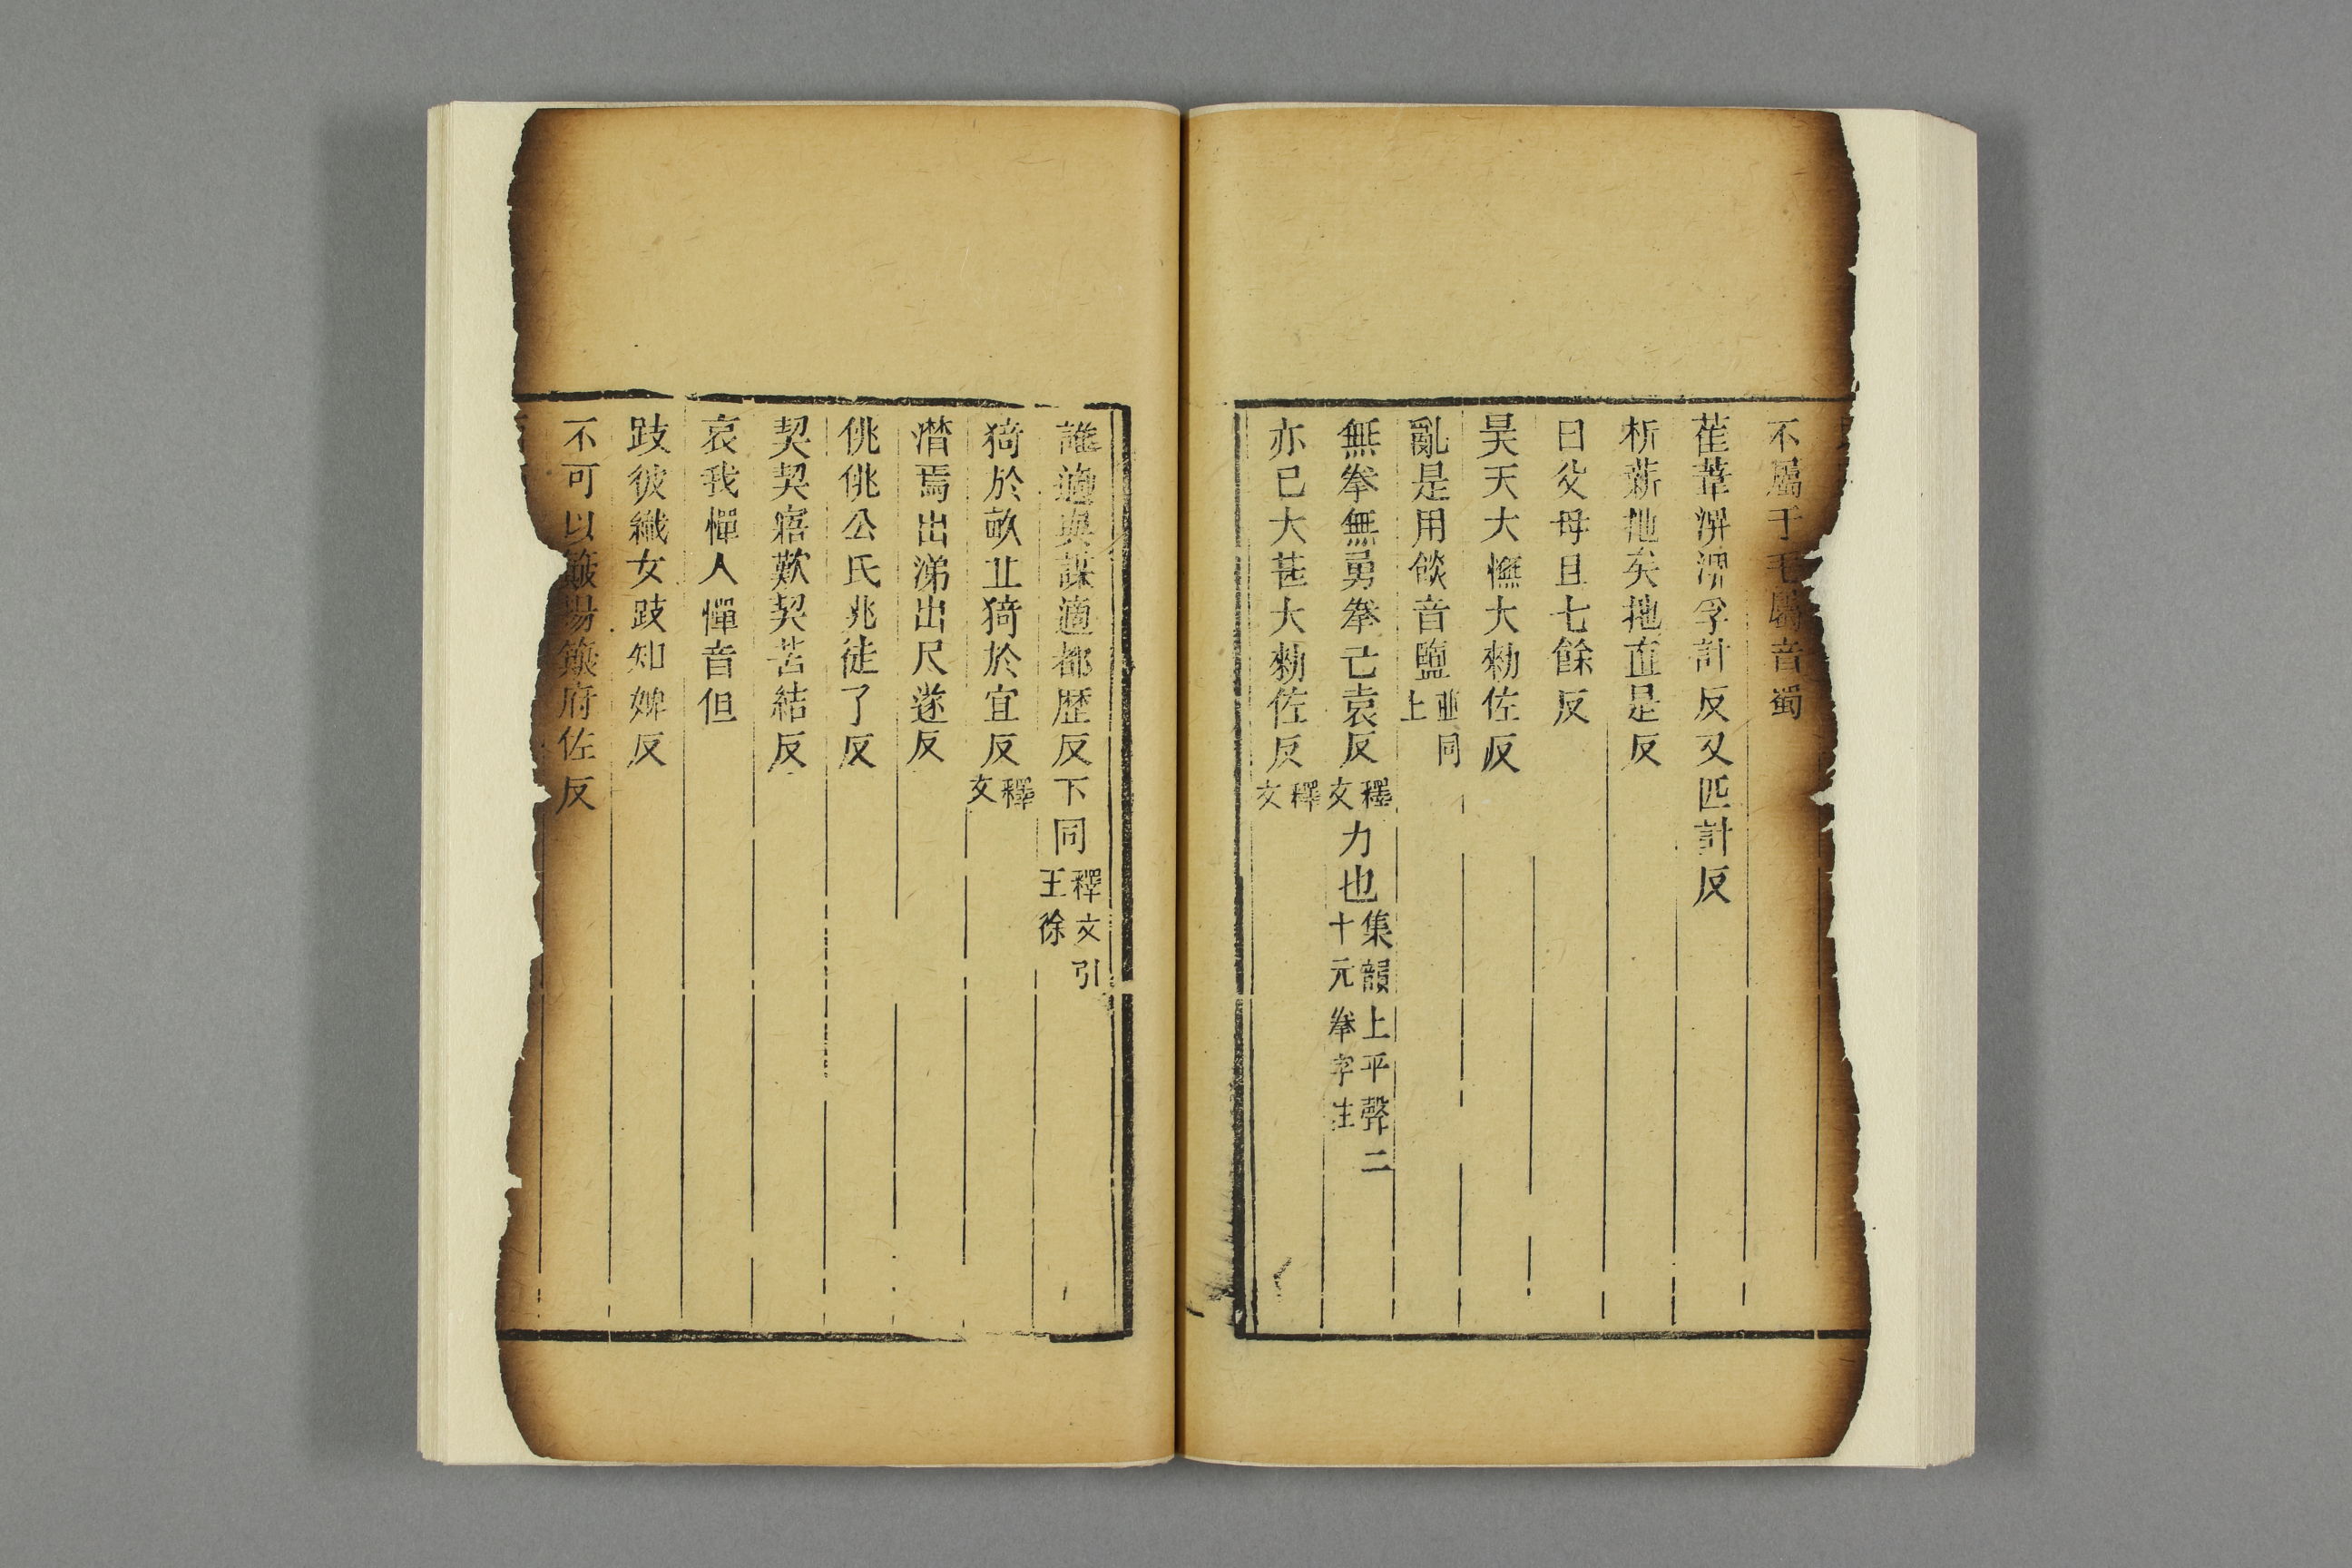 不屬于毛屬音蜀
萑葦淠淠孚計反又匹計反
析薪扡矣扡直是反
曰父母且七餘反
昊天大憮大勑佐反
亂是用餤音鹽並同上
無拳無勇拳亡袁反釋文力也集韻上平聲二十元拳字注
亦已大甚大勑佐反釋文
誰適與謀適都歷反下同釋文引王徐
猗於畝丘猗於宜反釋文
潸焉出涕出尺遂反
佻佻公氏兆徒了反
契契寤歎契苦結反
哀我憚人憚音但
跂彼織女跂知婢反
不可以簸揚簸府佐反